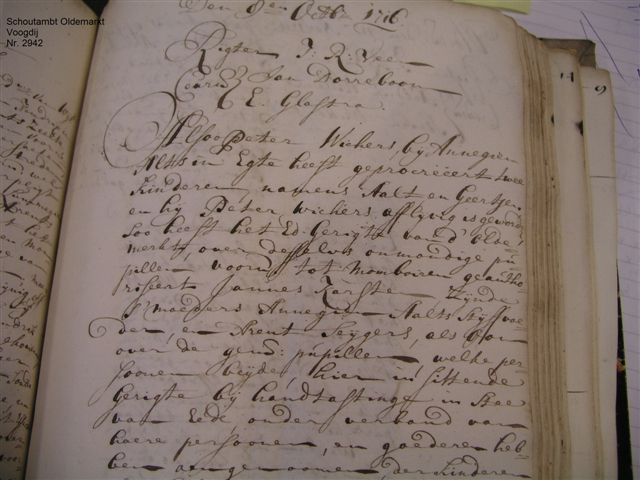 Schoutambt Oldemarkt
Voogdij
Nr. 2942
Den 8en Octbr 1716
Rigter J. R. Veen
Jan Dorreboom
E. Glastra
Alsoo Peter Wichers, by Annegien
Alts in Egte heeft geprocreëert twee
kinderen, namens Aalt en Geertjen
en hy Peter Wichers afflyvig is geworden
Soo heeft het Ed. Gerigte van d' Olde-
merkt, over desselvs onmondige pu-
pillen voorn: tot momboiren geautho-
riseert Jannes Karsten, zynde
s' moeders Annegien Aalts Styfvae-
der, en Arent Seygers, als Oom
over de gem: pupillen, welke per-
soonen beyde, hier in sittende
Gerigte by handtastinge in stee
van Eede, onder verband van
haere persoonen, en goederen heb-
ben aengenoomen, der kinderen